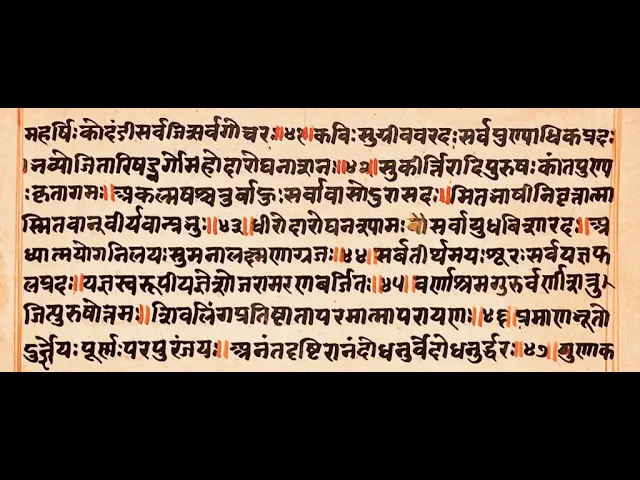 महर्षिःकोदंडीसर्वजित्सर्वगोचरः॥४१॥कविःसुग्रीववरदःसर्वपुण्याधिकप्रदः
।नव्योजितारिषड्वर्गोमहोदारोघनाशनः॥४२॥सुकीर्त्तिरादिपुरुषःकांतपुण्य
ःकृतागमः॥अकल्मषश्चतुर्वाहुःसर्वावासोऽरासदः॥मितभाषीनिवृत्तात्मा
स्मितवान्वीर्यवान्प्रभुः॥४३॥धीरोदारोघनश्यामःसर्वायुधविशारदः॥अ
ध्यात्मयोगनिलयःसुमनालक्ष्मणाग्रजः॥४४॥सर्वतीर्थमयःशूरःसर्वयज्ञफ
लप्रदः॥यज्ञस्वरूपीयज्ञेशोजरामरणवर्जितः॥४५॥वर्णाश्रमगुरुर्वर्णीशत्रु
जित्पुरुषोत्तमः॥शिवलिंगप्रतिष्ठातापरमात्मापरायणः॥४६॥प्रमाणभूतो
दुर्ज्ञेयःपूर्णःपरपुरंजयः॥अनंतदृष्टिरानंदोधनुर्वेदोधनुर्द्धरः॥४७॥गुणाक